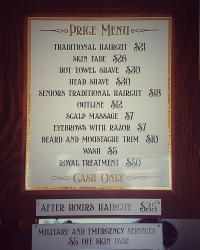 Price Menu
Traditional Haircut $21
Skin Fade $26
Hot Towel Shave $30
Head Shave $30
Seniors Traditional Haircut $18
Outline $12
Scalp Massage $7
Eyebrows with Razor $7
Beard and Moustache Trim $10
Wash $5
Royal Treatment $50
Cash Only
After Hours Haircut $35
Military and Emergency Services
$5 off Skin Fade